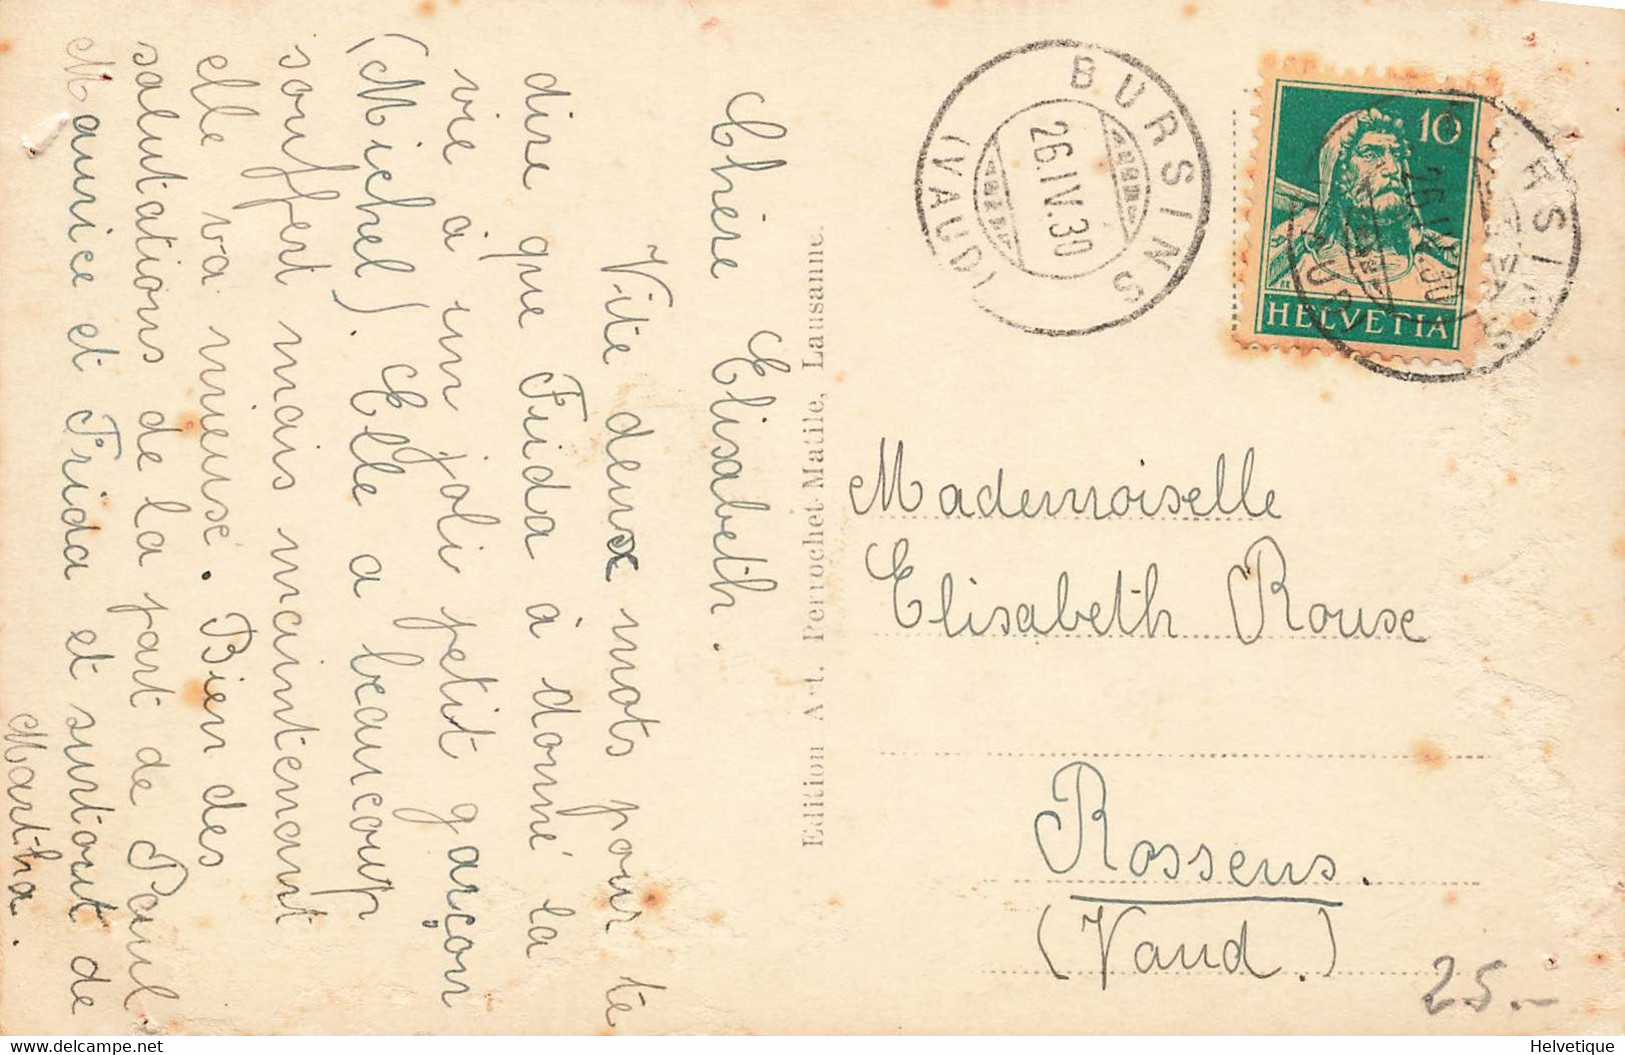 Chère Elisabeth.
Vite deux mots pour te
dire que Frida à donné la
vie à un joli petit garçon
(Michel). Elle a beaucoup
souffert mais maintenant
elle va mieuse. Bien des
salutations de la part de Paul
Maurice et Frida et surtout de
Martha.
Edition Art. Perrochet-Matile, Lausanne.
BURSINS
26.IV.30
(VAUD)
10
HELVETIA
BURSINS
26.IV.30
(VAUD)
Mademoiselle
Elisabeth Rouse
Rossens.
(Vaud.)
25.-
www.delcampe.net
Helvetique